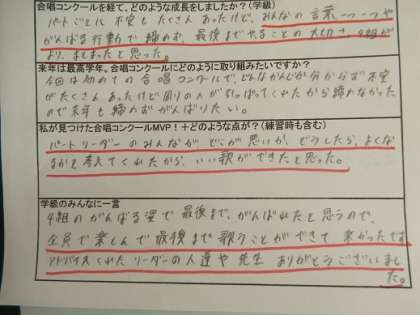 合唱コンクールを経て、どのような成長をしましたか？(学級)
パートごとに不安もたくさんあったけど、みんなの言葉一つ一つや
がんばる行動で諦めず、最後までやることの大切さ、4組が
より、まとまったと思った。
来年は最高学年。合唱コンクールにどのように取り組みたいですか？
今回は初めての合唱コンクールで、どんなかんじか分からず不安
がたくさんあったけど周りの人がひっぱってくれたから諦めなかった
ので来年も諦めずがんばりたい。
私が見つけた合唱コンクールMVP！＋どのような点が？(練習時も含む)
パートリーダーのみんながどこが悪いか、どうしたら、よくなる
かを考えてくれたから、いい歌ができたと思った。
学級のみんなに一言
4組のがんばる姿で最後まで、がんばれたと思うので、
全員で楽しんで最後まで歌うことができて良かったです
アドバイスくれたリーダーの人達や先生ありがとうございまし
た。